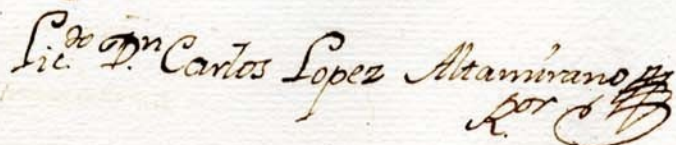 Lic.do Dn. Carlos Lopez Altamirano
R.or